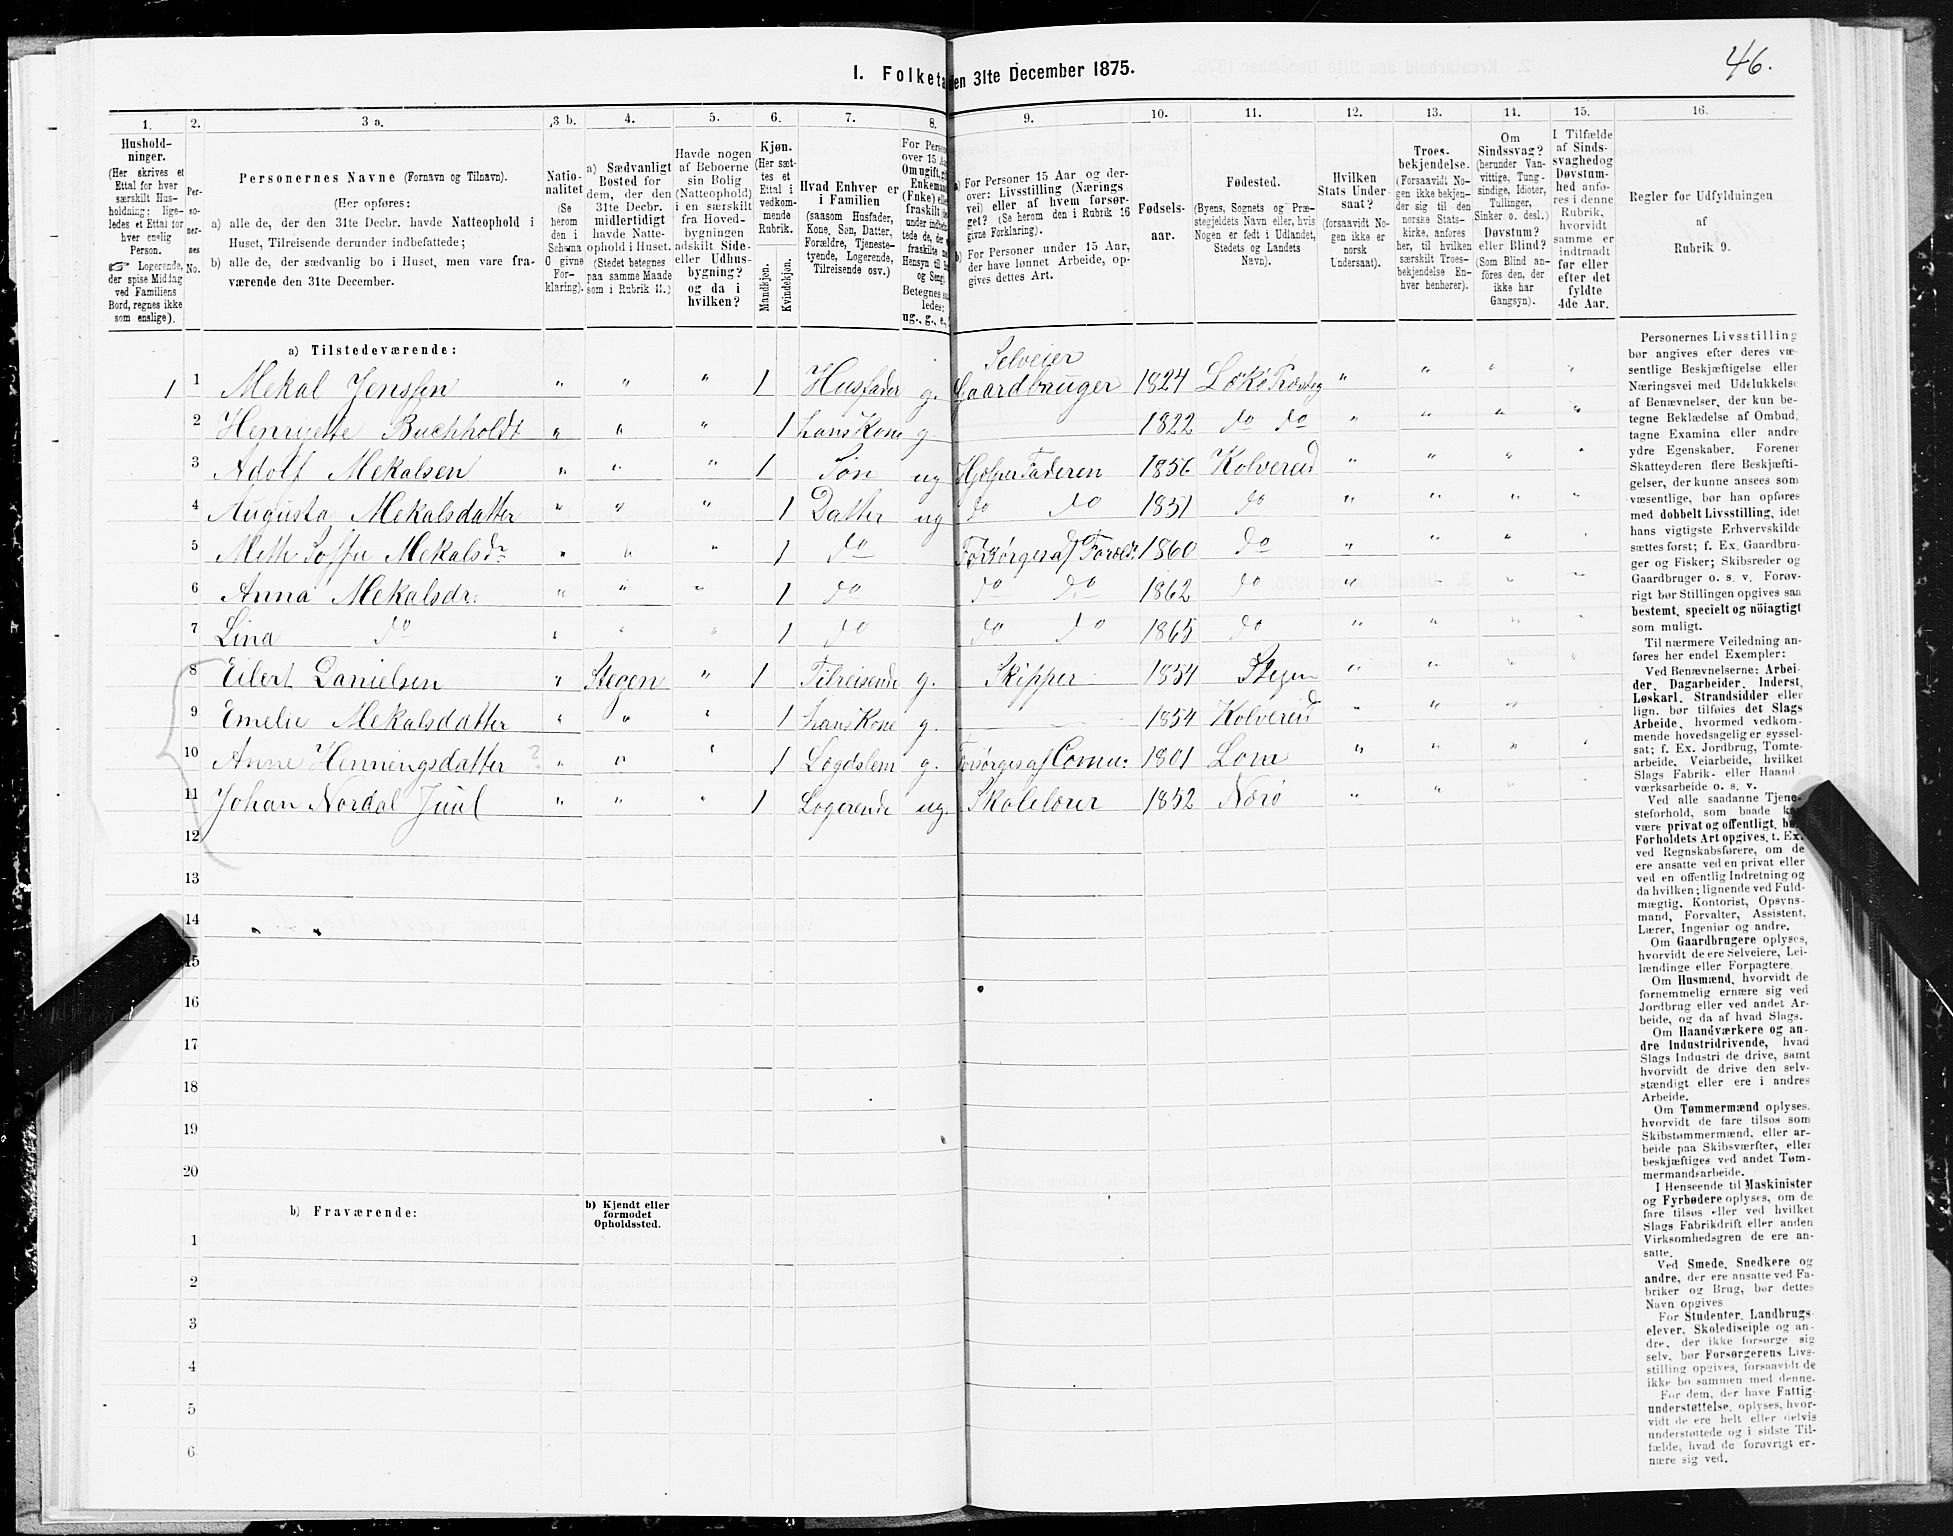 46.
I. Folketa den 31te December 1875.
1. 2. 3 a. 3 b. 4. 5. 6. 7. 8. 9. 10. 11. 12. 13. 14. 15. 16.
Hushold-
ninger.
(Her skrives et
Ettal for hver
særskilt Hus-
holdning; lige-
ledes et Ettal for
hver enslig
Person.
☞ Logerende,
der spise Middag
ved Familiens
Bord, regnes ikke
som enslige).
Per-
so-
ner-
nes
No.
Personernes Navne (Fornavn og Tilnavn).
(Her opføres:
a) alle de, der den 31te Decbr. havde Natteophold i
Huset, Tilreisende derunder indbefattede;
b) alle de, der sædvanlig bo i Huset, men vare fra-
værende den 31te December.
Natio-
nalitet
(Se
herom
den i
Schema
O givne
For-
klaring).
a) Sædvanligt
Bosted for
dem, der den
31te Decbr.
midlertidigt
havde Natte-
ophold i Huset.
(Stedet betegnes
paa samme Maade
som i Rubrik 11.)
Havde nogen
af Beboerne
sin Bolig
(Natteophold)
i en særskilt
fra Hoved-
bygningen
adskilt Side-
eller Udhus-
bygning?
og da i
hvilken?
Kjøn.
(Her sæt-
tes et
Ettal i
vedkom-
mende
Rubrik.
Mandkjøn.
Kvindekjøn.
Hvad Enhver er
i Familien
(saasom Husfader,
Kone, Søn, Datter,
Forældre, Tjeneste-
tyende, Logerende,
Tilreisende osv.)
For Person
over 15 Aa
Om ugift, gi
Enkeman
(Enke) elle
fraskilt
Betegnes saa
ledes:
ug., g., e.,
a) For Personer 15 Aar og der-
over: Livsstilling (Nærings
vei) eller af hvem forsør-
get? (Se herom den i Rubrik 16
givne Forklaring).
b) For Personer under 15 Aar,
der have lønnet Arbeide, op-
gives dettes Art.
Fødsels-
aar.
Fødested.
(Byens, Sognets og Præ-
stegjeldets Navn eller, hvis
Nogen er født i Udlandet,
Stedets og Landets
Navn).
Hvilken
Stats Under-
saat?
(forsaavidt No-
gen ikke er
norsk
Undersaat).
Troes-
bekjendelse.
(Forsaavidt No-
gen ikke bekjen-
der sig til den
norske Stats-
kirke, anføres
her, til hvilken
særskilt Troes-
bekjendelse En-
hver henhører).
Om
Sindssvag?
(herunder Van-
vittige, Tung-
sindige, Idioter,
Tullinger,
Sinker o. desl.)
Døvstum?
eller Blind?
(Som Blind an-
føres den, der
ikke har
Gangsyn).
I Tilfælde
af Sinds-
svaghed og
Døvstum-
hed anfø-
res i denne
Rubrik,
hvorvidt
samme er
indtraadt
før eller
efter det
fyldte
4de Aar.
Regler for Udfyldningen
af
Rubrik 9.
a) Tilstedeværende:
1 1 Mekal Jenssen " " " 1 Husfader g. Selveier Gaardbruger 1824 Lekø Præsteg " " " "
2 Henryette Buchholdt " " " 1 hans Kone g. 1822 do do " " " "
3 Adolf Mekalsen " " " 1 Søn ug Hjelper Faderen 1856 Kolvereid " " " "
4 Augusta Mekalsdatter " " " 1 Datter ug do do 1851 do " " " "
5 Meth Soffie Mekalsdr " " " 1 do Forsørges af Foræld. 1860 do " " " "
6 Anna Mekalsdr: " " " 1 do do do 1862 do " " " "
7 Lina do " " " 1 do do do 1865 do " " " "
8 Eilert Danielsen " Stegen " 1 Tilreisende g. Skipper 1854 Stegen " " " "
9 Emelie Mekalsdatter " " " 1 hans Kone g. 1854 Kolvereid " " " "
10 Anne Henningsdatter ? " " " 1 Lægdslem g. Forsørges af Comu: 1801 Lom " " " "
11 Johan Nordal Juul " " " 1 Logerende ug. Skolelærer 1852 Nærø " " " "
12
13
14
15
16
17
18
19
20
b) Fraværende:
b) Kjendt eller
formodet
Opholdssted.
1
2
3
4
5
6
Personernes Livsstilling
bør angives efter deres væ-
sentlige Beskjæftigelse eller
Næringsvei med Udelukkelse
af Benævnelser, der kun be-
tegne Beklædelse af Ombud,
tagne Examina eller andre
ydre Egenskaber. Forener
Skatteyderen flere Beskjæfti-
gelser, der kunne ansees som
væsentlige, bør han opføres
med dobbelt Livsstilling, idet
hans vigtigste Erhvervskilde
sættes først; f. Ex. Gaardbru-
ger og Fisker; Skibsreder og
Gaardbruger o. s. v. Forøv-
rigt bør Stillingen opgives saa
bestemt, specielt og nöiagtigt
som muligt.
Til nærmere Veiledning an-
føres her endel Exempler:
Ved Benævnelserne: Arbei-
der, Dagarbeider, Inderst,
Løskarl, Strandsidder eller
lign. bør tilføies det Slags
Arbeide, hvormed vedkom-
mende hovedsagelig er syssel-
sat; f. Ex. Jordbrug, Tomte-
arbeide, Veiarbeide, hvilket
Slags Fabrik- eller Haand-
værksarbeide o. s. v.
Ved alle saadanne Tjene-
steforhold, som baade k
være privat og offentligt, bø
Forholdets Art opgives, t. Ex.
ved Regnskabsførere, om de
ere ansatte ved en privat eller
ved en offentlig Indretning og
da hvilken; lignende ved Fuld-
mægtig, Kontorist, Opsyns-
mand, Forvalter, Assistent,
Lærer, Ingeniør og andre.
Om Gaardbrugere oplyses,
hvorvidt de ere Selveiere, Lei-
lændinge eller Forpagtere.
Om Husmænd, hvorvidt de
fornemmelig ernære sig ved
Jordbrug eller ved andet Ar-
beide, og da af hvad Slags.
Om Haandværkere og an-
dre Industridrivende, hvad
Slags Industri de drive, samt
hvorvidt de drive den selv-
stændigt eller ere i andres
Arbeide.
Om Tømmermænd oplyses,
hvorvidt de fare tilsøs som
Skibstømmermænd, eller ar-
beide paa Skibsværfter, eller
beskjæftiges ved andet Tøm-
mermandsarbeide.
I Henseende til Maskinister
og Fyrbødere oplyses, om de
fare tilsøs eller ved hvilket
Slags Fabrikdrift eller anden
Virksomhedsgren de ere an-
satte.
Ved Smede, Snedkere og
andre, der ere ansatte ved Fa-
briker og Brug, bør dettes
Navn opgives
For Studenter, Landbrugs-
elever, Skoledisciple og an-
dre, der ikke forsørge sig
selv, bør Forsørgerens Livs-
stilling opgives, forsaavidt de
ikke bo sammen med denne.
For dem, der have Fattig-
understøttelse, oplyses, hvor-
vidt de ere helt eller delvis
understøttede og i sidste Til-
fælde, hvad de forøvrigt er-
nære sig ved.